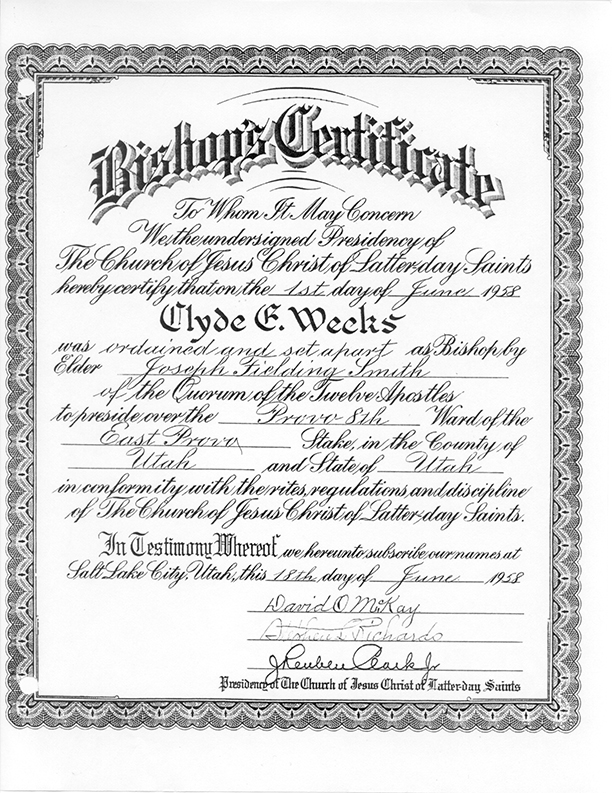 Bishop's Certificate
To Whom It May Concern
We, the undersigned Presidency of
The Church of Jesus Christ of Latter-day Saints
hereby certify that on the 1st day of June 1958
Clyde E. Weeks
was ordained and set apart as Bishop by
Elder Joseph Fielding Smith
of the Quorum of the Twelve Apostles
to preside over the Provo 8th Ward of the
East Provo Stake, in the County of
Utah and State of Utah
in conformity with the rites, regulations and discipline
of The Church of Jesus Christ of Latter-day Saints.
In Testimony Whereof, we hereunto subscribe our names at
Salt Lake City, Utah, this 18th day of June 1958
David O. McKay
Richards
J Reuben Clark Jr
Presidency of The Church of Jesus Christ of Latter-day Saints